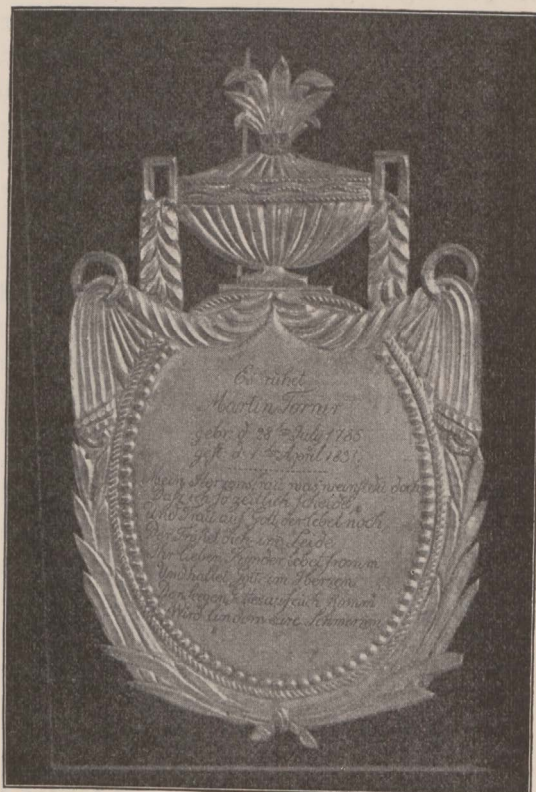 Es ruhet
Martin Torner
gebr. d. 28ten July 1785
gest. d. 1ten April 183
Mein was weinst du doch
Daß ich so zeitlich scheide
Und Trau auf Gott der lebet noch
Der Tröstet dich im Leide
Ihr lieben Kinder lebet fromm
Und haltet Gott im Herzen
Segen auf euch Komm
Wird lindern eure Schmerzen